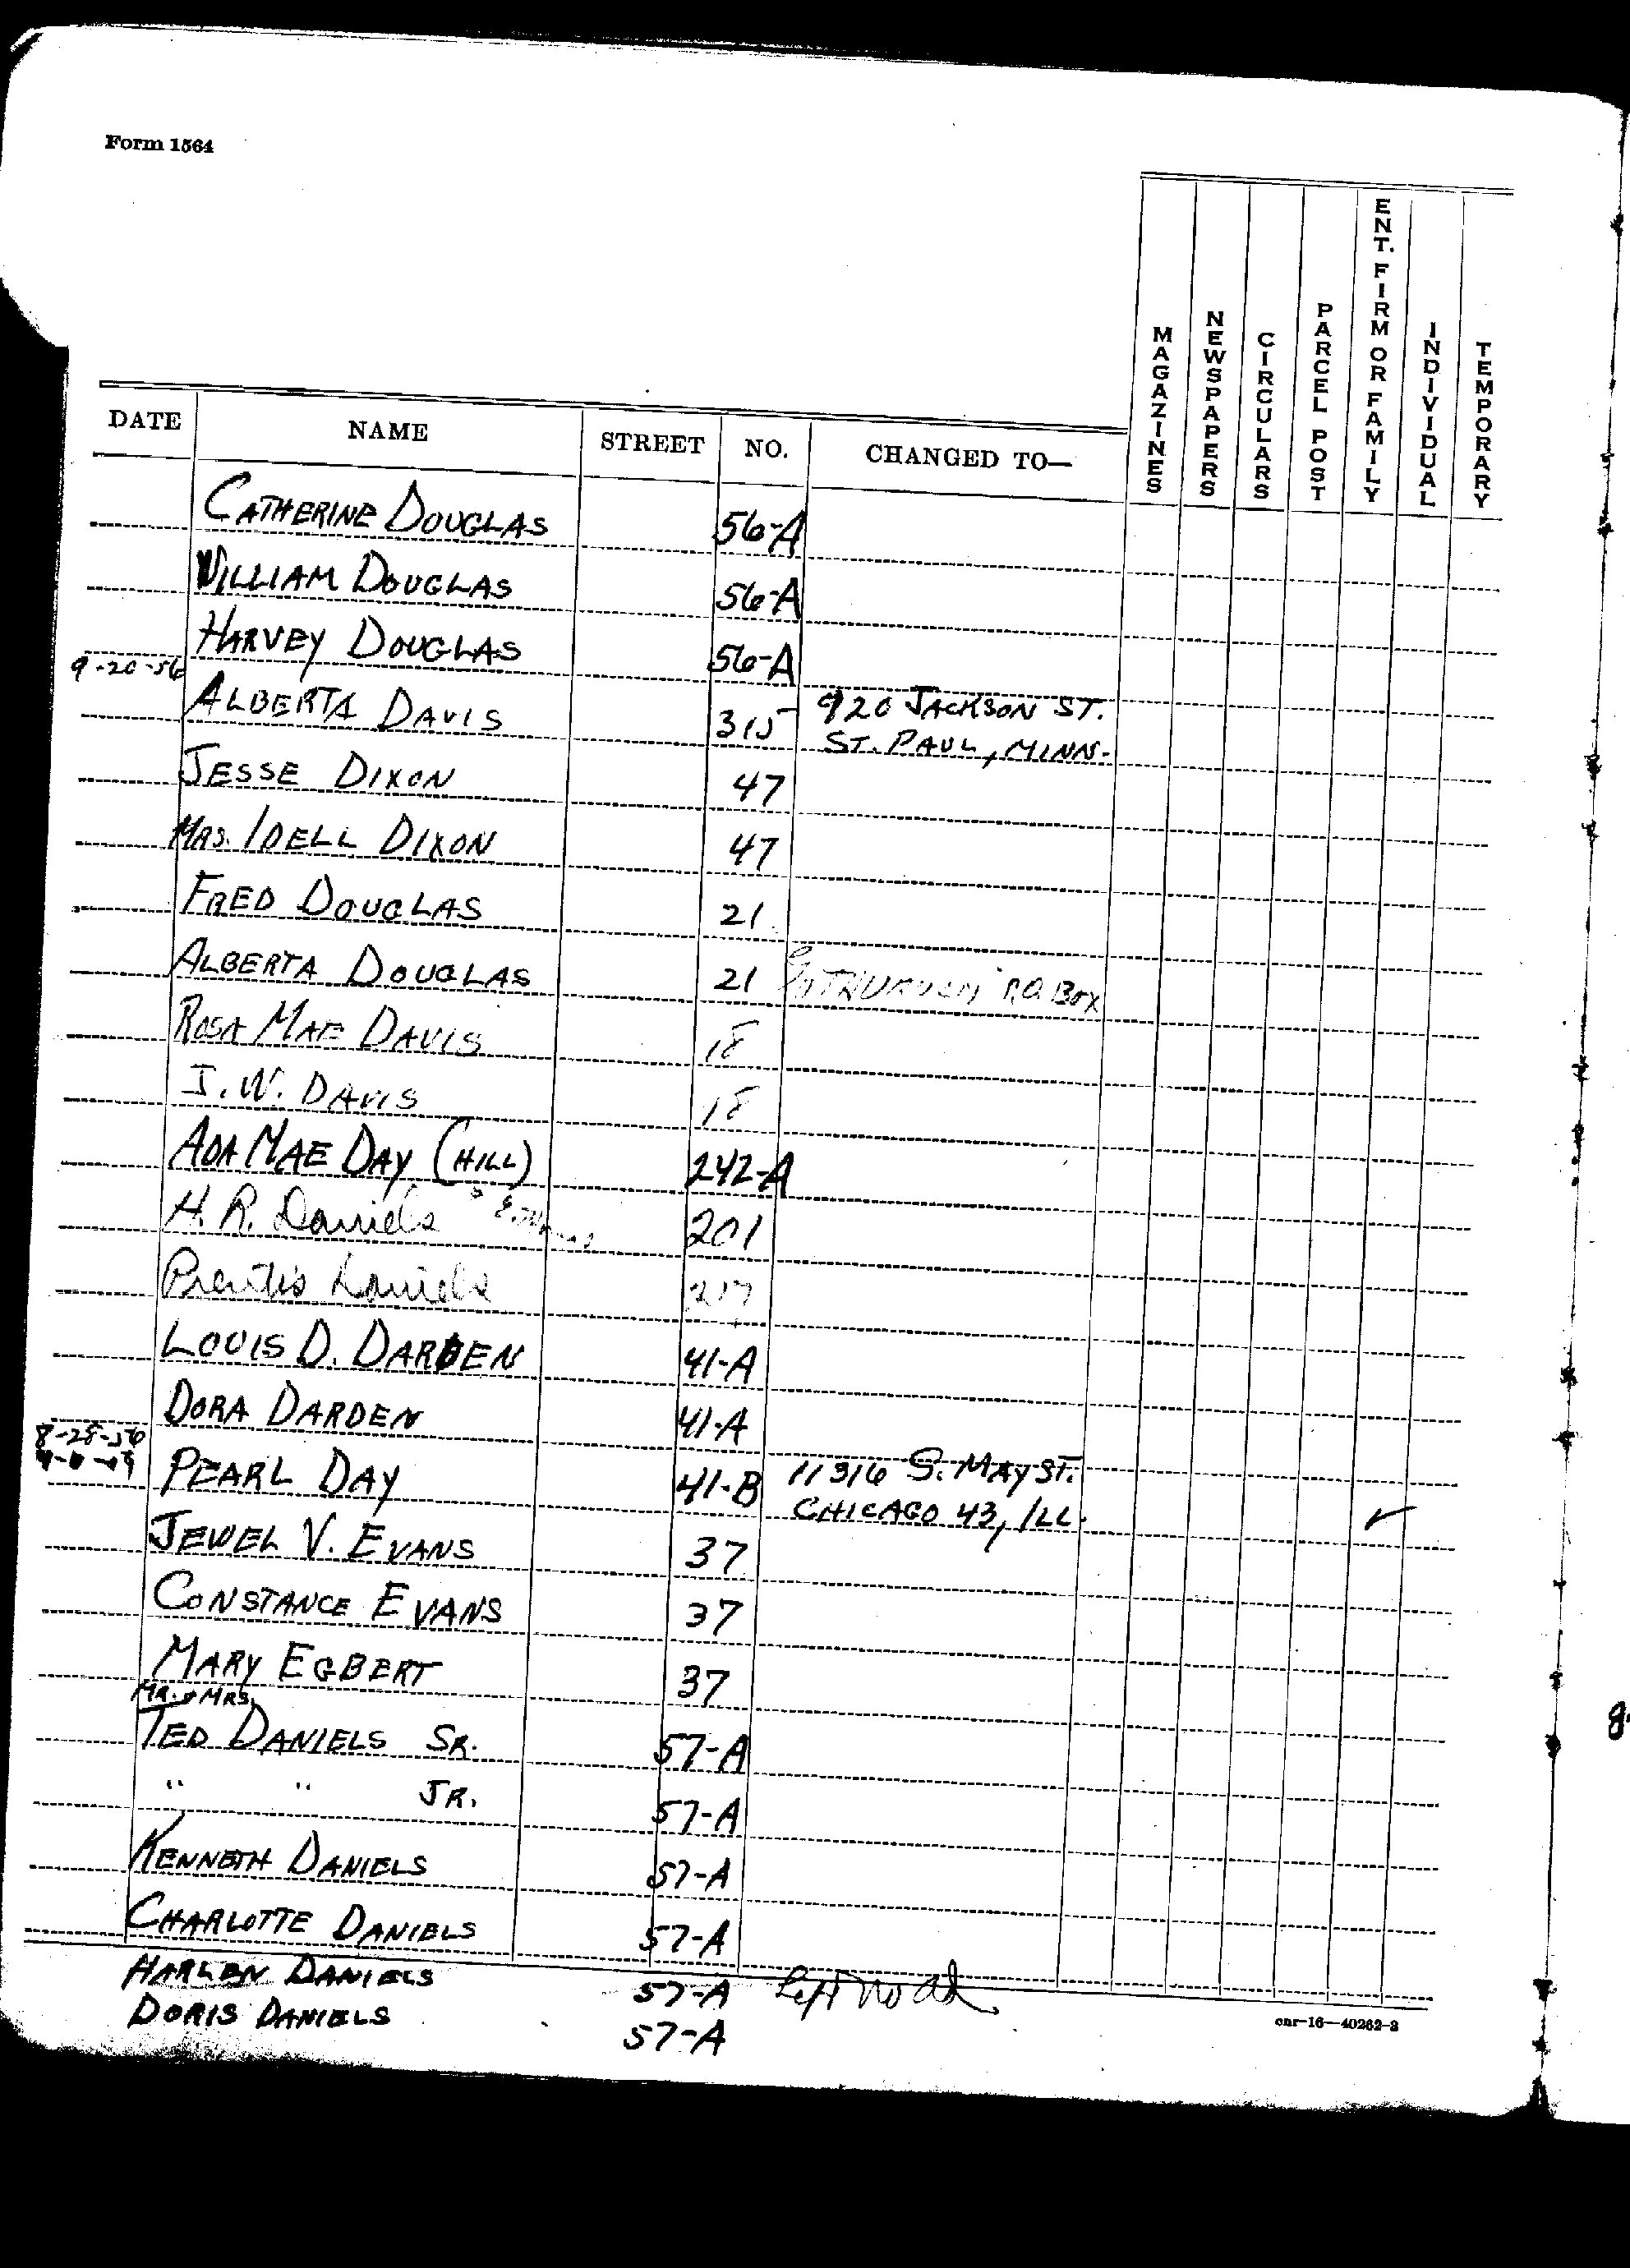 Form 1564
DATE NAME STREET NO. CHANGED TO— MAGAZINES NEWSPAPERS CIRCULARS PARCEL POST ENT. FIRM OR FAMILY INDIVIDUAL TEMPORARY
CATHERINE DOUGLAS 56-A
WILLIAM DOUGLAS 56-A
HARVEY DOUGLAS 56-A
9-20-56 ALBERTA DAVIS 315 920 JACKSON ST.
ST. PAUL, MINN.
JESSE DIXON 47
MRS. IDELL DIXON 47
FRED DOUGLAS 21
ALBERTA DOUGLAS 21 P.O. BOX
ROSA MAE DAVIS 18
I. W. DAVIS 18
ADA MAE DAY (HILL) 242-A
H. R. Daniels 201
Prentis Daniels 217
LOUIS D. DARDEN 41-A
DORA DARDEN 41-A
8-28-56
PEARL DAY 41-B 11316 S. MAY ST.
CHICAGO 43, ILL. ✓
JEWEL V. EVANS 37
CONSTANCE EVANS 37
MARY EGBERT 37
MR. & MRS.
TED DANIELS SR. 57-A
" " JR. 57-A
KENNETH DANIELS 57-A
CHARLOTTE DANIELS 57-A
HARLEN DANIELS 57-A Left no ad.
DORIS DANIELS 57-A
cnr-16-40262-2